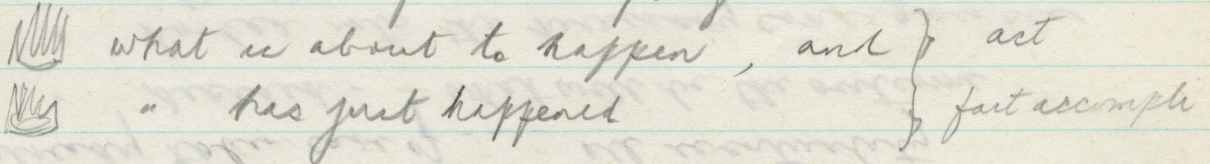 what is about to happen, and } act
" has just happened } fait accompli